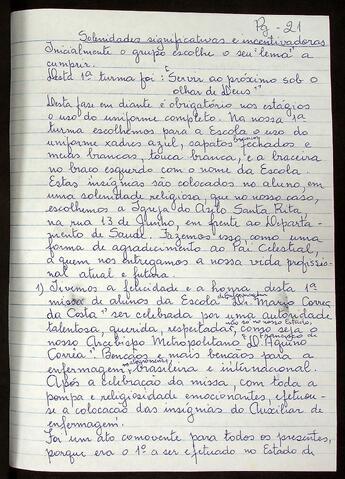 Pg - 21
Solenidades significativas e incentivadoras
Inicialmente o grupo escolhe o seu "lema" a
cumprir.
Desta 1ª turma foi: "Servir ao próximo sob o
olhar de Deus"
Desta fase em diante é obrigatório nos estágios
o uso do uniforme completo. Na nossa 1ª
turma escolhemos para a Escola o uso do
uniforme xadres azul, sapatos fechados e
meias brancas, touca branca, e a braceira
no braço esquerdo com o nome da Escola.
Estas insígnias são colocados no aluno, em
uma solenidade religiosa, que no nosso caso,
escolhemos a Igreja do Asilo Santa Rita
na rua 13 de Junho, em frente ao Departa-
mento de Saúde. Fazemos isso, como uma
forma de agradecimento ao Pai Celestial,
a quem nos entregamos a nossa vida profissio-
nal atual e futura.
1) Tivemos a felicidade e a honra desta 1ª
missa de alunos da Escola "Dr. Mario Correa
da Costa" ser celebrada por uma autoridade
talentosa, querida, respeitada, não só no nosso Estado,
como seja o
nosso Arcebispo Metropolitano D. Francisco de Aquino
Correia" Bençãos e mais bençãos para a
enfermagem brasileira e internacional.
Após a celebração da missa, com toda a
pompa e religiosidade emocionantes, efetuou-
se a colocação das insígnias do Auxiliar de
enfermagem.
Foi um ato comovente para todos os presentes,
porque era o 1º a ser efetuado no Estado de